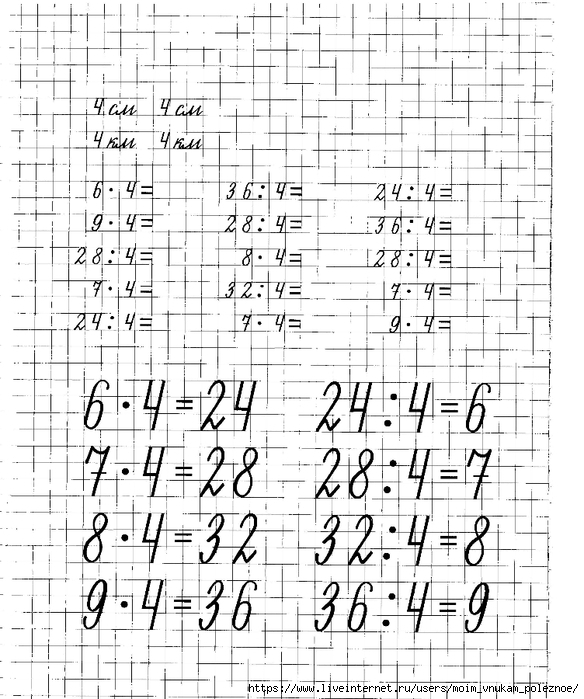 4 см 4 см
4 км 4 км
6 · 4 = 36 : 4 = 24 : 4 =
9 · 4 = 28 : 4 = 36 : 4 =
28 : 4 = 8 · 4 = 28 : 4 =
7 · 4 = 32 : 4 = 7 · 4 =
24 : 4 = 7 · 4 = 9 · 4 =
6 · 4 = 24 24 : 4 = 6
7 · 4 = 28 28 : 4 = 7
8 · 4 = 32 32 : 4 = 8
9 · 4 = 36 36 : 4 = 9
https://www.liveinternet.ru/users/moim_vnukam_poleznoe/